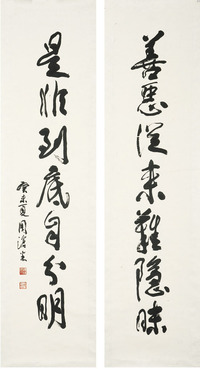 善惡從来難隐昧
是非到底自分明
癸未夏周滄米